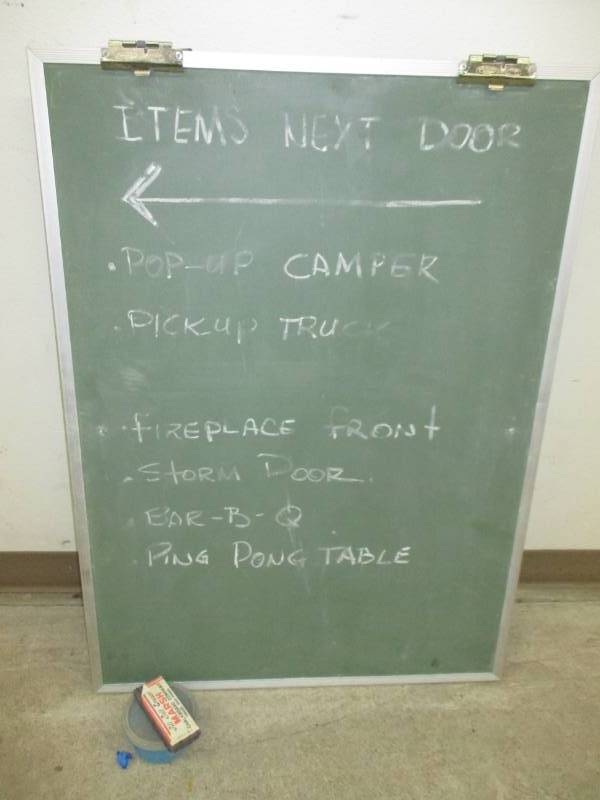 ITEMS NEXT DOOR
• POP-UP CAMPER
• PICKUP TRUCK
• FIREPLACE FRONT
• STORM DOOR
• BAR-B-Q
• PING PONG TABLE
MARSH